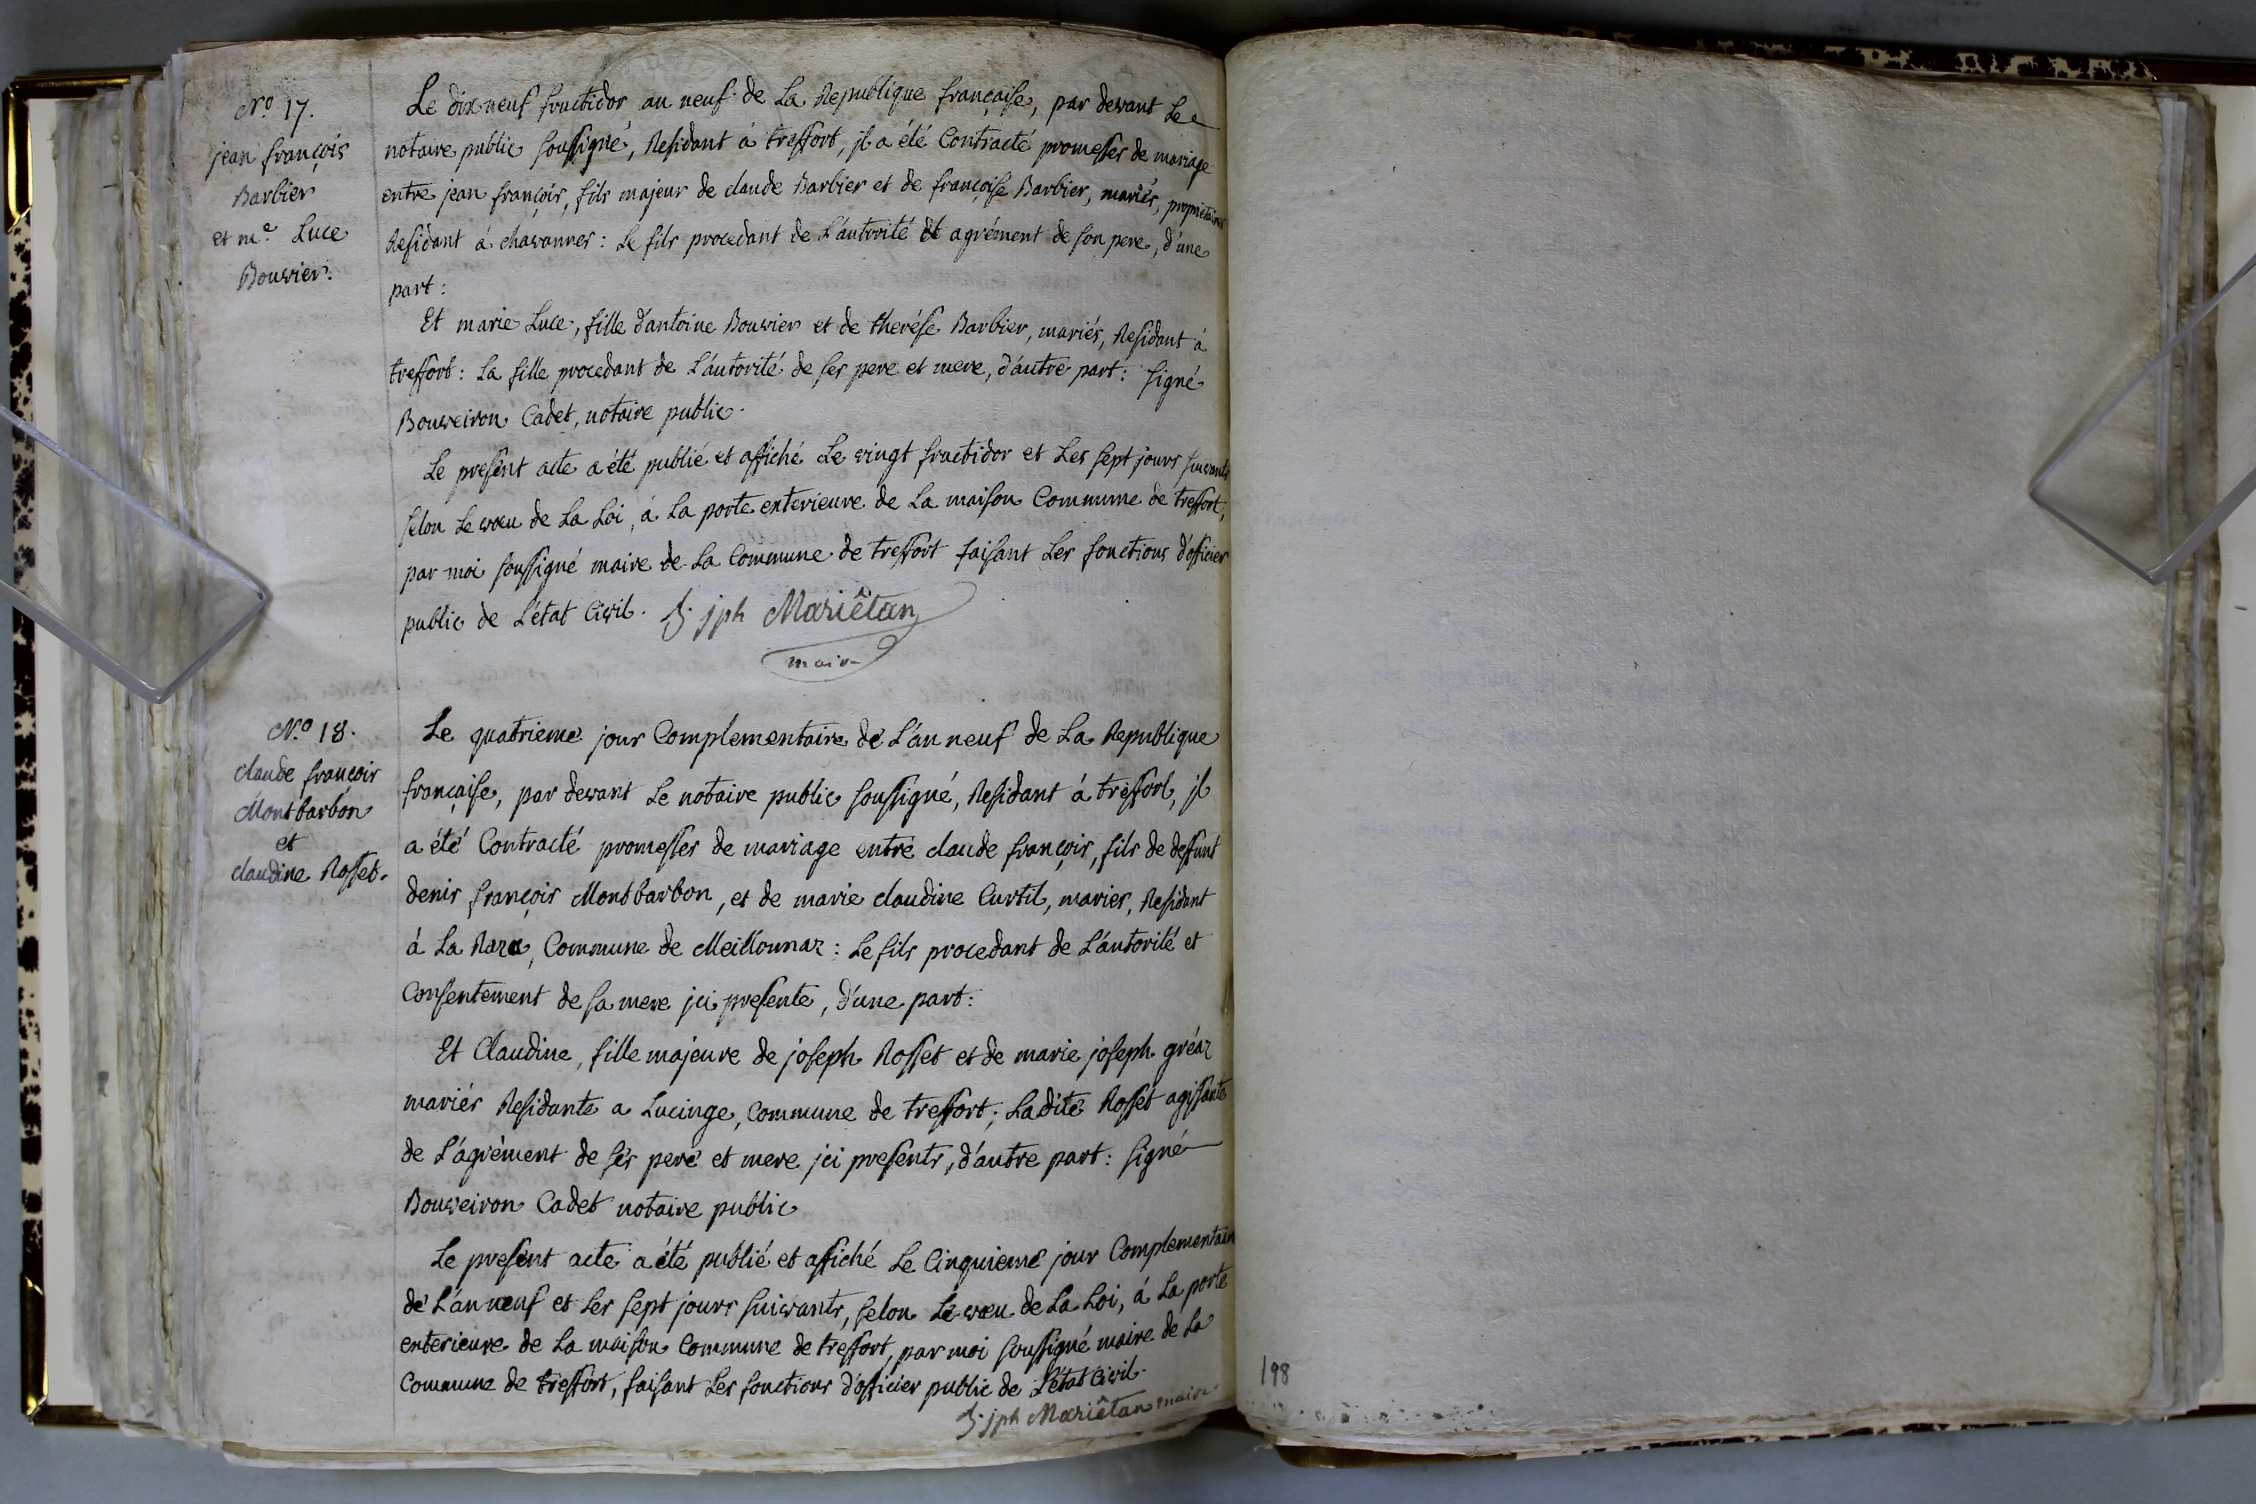 N.º 17.
jean françois
Barbier
et m.e Luce
Bouvier.
Le dix neuf fructidor, an neuf de La Republique française, par devant Le
notaire public soussigné, Residant á treffort, jl a été Contracté promesses de mariage
entre jean françois, fils majeur de claude Barbier et de françoise Barbier, mariés, propriétaires
Residant á chavannes : Le fils procedant de L'autorité et agrément de son pere, d'une
part :
Et marie Luce, fille d'antoine Bouvier et de thérése Barbier, mariés, Residant á
treffort : La fille procedant de L'autorité de ses pere et mere, d'autre part : signé
Bouveiron Cadet, notaire public.
Le present acte a été publié et affiché Le vingt fructidor et Les sept jours suivants
selon Le vœu de La Loi, á La porte exterieure de La maison Commune de treffort,
par moi soussigné maire de La Commune de treffort faisant Les fonctions d'officier
public de L'état Civil. jph Mariêtan
maire
N.º 18.
claude françois
Montbarbon
et
claudine Rosset.
Le quatrieme jour Complementaire de L'an neuf de La Republique
française, par devant Le notaire public soussigné, Residant á treffort, jl
a été Contracté promesses de mariage entre claude françois, fils de deffunt
denis françois Montbarbon, et de marie claudine Curtil, mariés, Residant
á La Raza, Commune de Meillonnaz : Le fils procedant de L'autorité et
Consentement de sa mere jci presente, d'une part :
Et Claudine, fille majeure de joseph Rosset et de marie joseph gréaz
mariés Residante a Lucinge, Commune de treffort; Ladite Rosset agissante
de L'agrément de ses pere et mere jci presents, d'autre part : signé
Bouveiron Cadet notaire public
Le present acte a été publié et affiché Le Cinquieme jour Complementaire
de L'an neuf et Les sept jours suivants, selon Le vœu de La Loi, á La porte
exterieure de La maison Commune de treffort, par moi soussigné maire de La
Commune de treffort, faisant Les fonctions d'officier public de L'état Civil.
jph Mariêtan maire
198